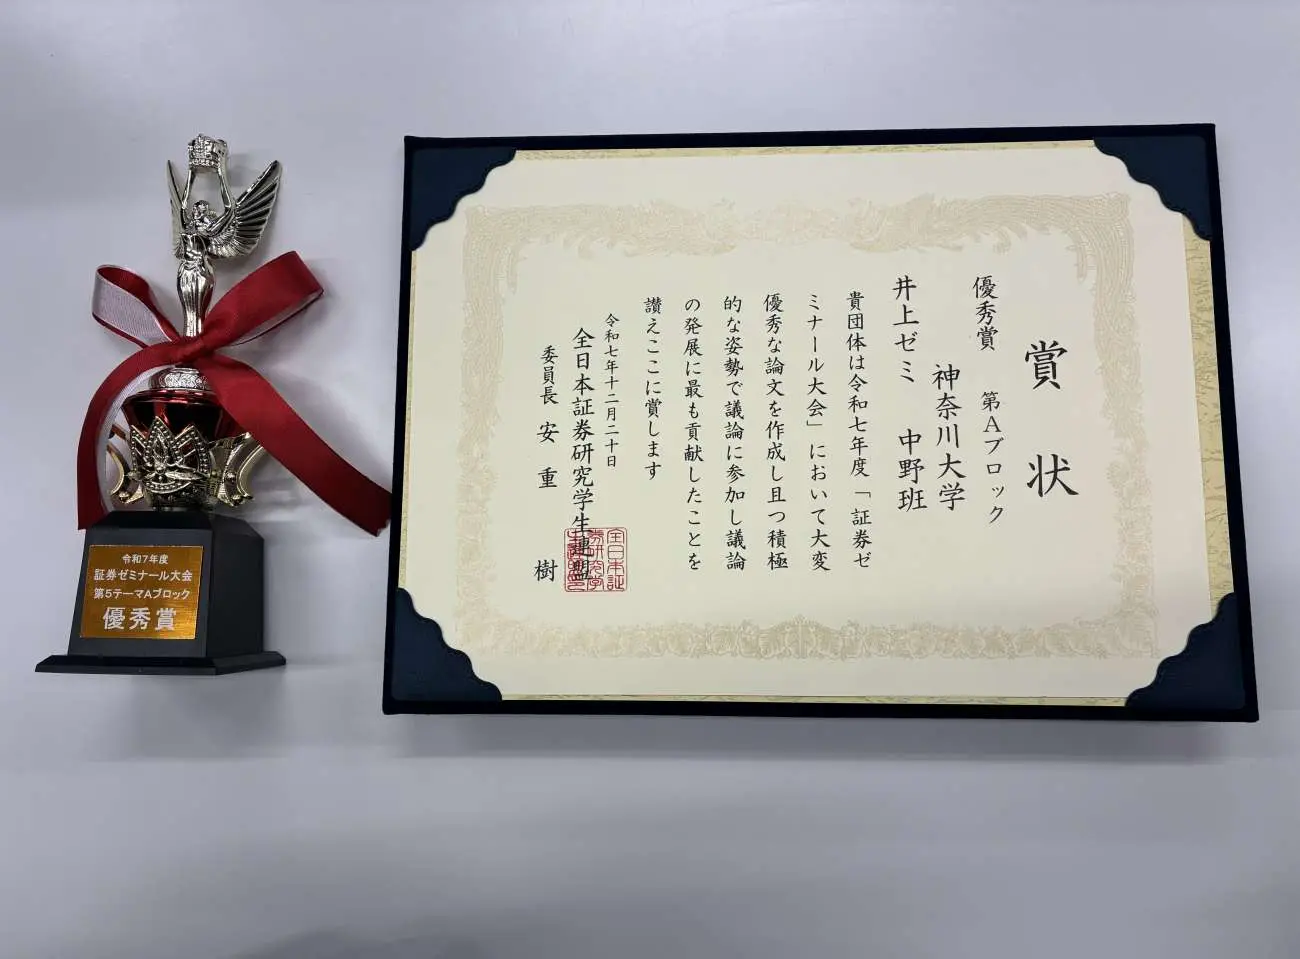 令和7年度
証券ゼミナール大会
第5テーマAブロック
優秀賞
賞状
優秀賞 第Aブロック
神奈川大学
井上ゼミ 中野班
貴団体は令和七年度「証券ゼ
ミナール大会」において大変
優秀な論文を作成し且つ積極
的な姿勢で議論に参加し議論
の発展に最も貢献したことを
讃えここに賞します
令和七年十二月二十日
全日本証券研究学生連盟
委員長 安重 樹